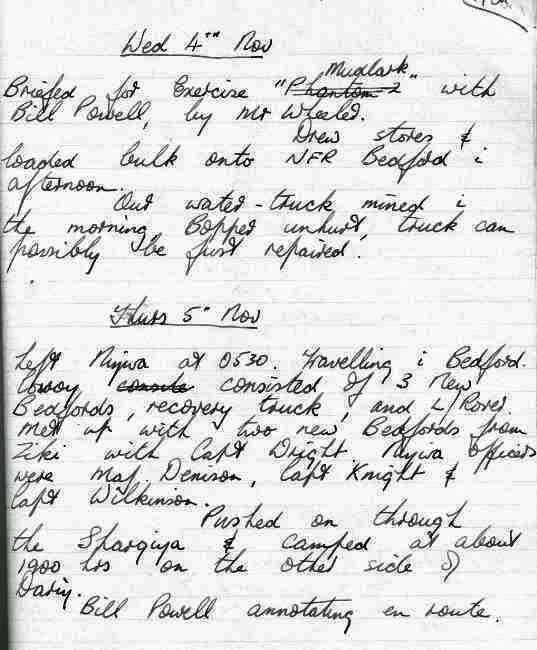 Wed 4th Nov
Mudlark
Briefed for Exercise "Phantom 2" with
Bill Powell, by Mr Wheeler.
Drew stores &
loaded bulk onto NFR Bedford i
afternoon.
Our water-truck mined i
the morning. Bopper unhurt, truck can
possibly be just repaired.
Thurs 5th Nov
Left Nujwa at 0530. Travelling i Bedford.
Convoy consists consisted of 3 New
Bedfords, recovery truck, and L/Rover.
Met up with two new Bedfords from
Ziki with Capt Dright. Nujwa officers
were Maj. Denison, Capt Knight &
Capt Wilkinson.
Pushed on through
the Sharqiya & camped at about
1900 hrs on the other side of
Dariy.
Bill Powell annotating en route.